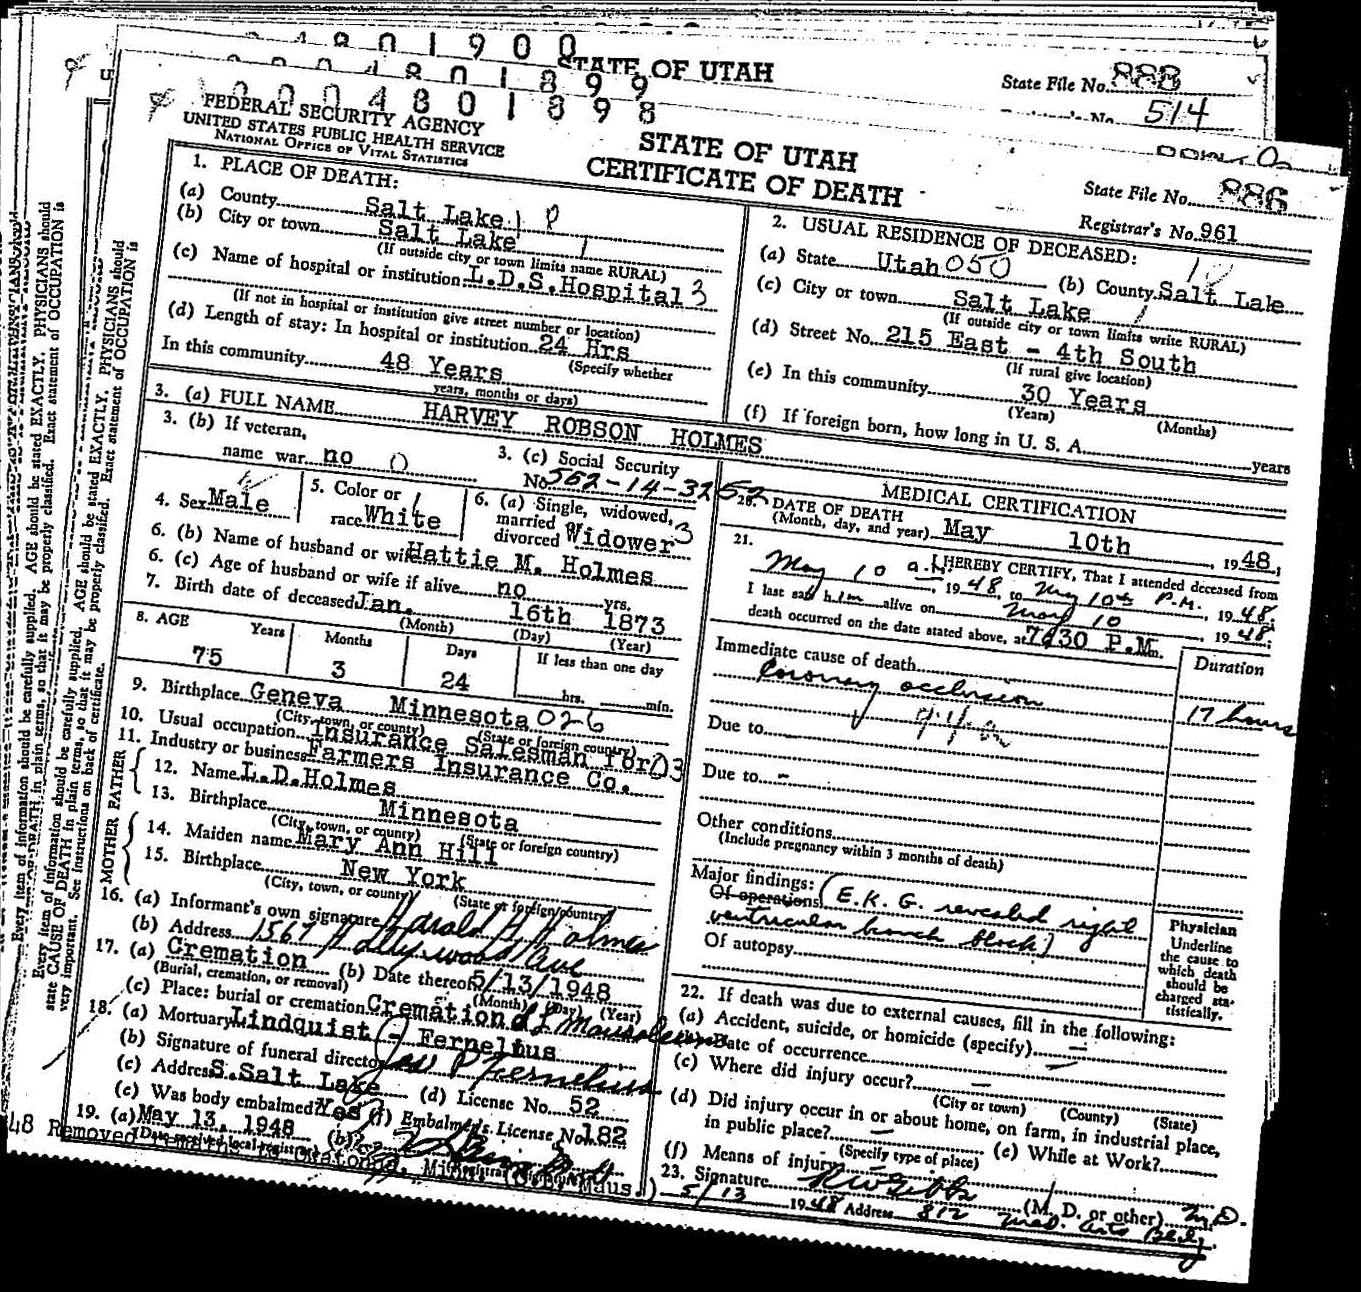 04801900
STATE OF UTAH
State File No. 888
0004801899
514
0004801898
FEDERAL SECURITY AGENCY
UNITED STATES PUBLIC HEALTH SERVICE
NATIONAL OFFICE OF VITAL STATISTICS
STATE OF UTAH
CERTIFICATE OF DEATH
State File No. 886
Registrar's No. 961
1. PLACE OF DEATH:
(a) County Salt Lake
(b) City or town Salt Lake
(If outside city or town limits name RURAL)
(c) Name of hospital or institution L.D.S. Hospital 3
(If not in hospital or institution give street number or location)
(d) Length of stay: In hospital or institution 24 Hrs
(Specify whether
In this community 48 Years
years, months or days)
2. USUAL RESIDENCE OF DECEASED:
(a) State Utah 050 (b) County Salt Lake
(c) City or town Salt Lake
(If outside city or town limits write RURAL)
(d) Street No. 215 East - 4th South
(If rural give location)
(e) In this community 30 Years
(Years) (Months)
(f) If foreign born, how long in U. S. A. years
3. (a) FULL NAME HARVEY ROBSON HOLMES
3. (b) If veteran,
name war no 0
3. (c) Social Security
No. 552-14-3252
4. Sex Male
5. Color or
race White
6. (a) Single, widowed,
married
divorced Widower 3
6. (b) Name of husband or wife Hattie M. Holmes
6. (c) Age of husband or wife if alive no yrs.
7. Birth date of deceased Jan. 16th 1873
(Month) (Day) (Year)
8. AGE Years Months Days If less than one day
75 3 24 hrs. min.
9. Birthplace Geneva Minnesota 026
(City, town, or county) (State or foreign country)
10. Usual occupation Insurance Salesman for 03
11. Industry or business Farmers Insurance Co.
FATHER
12. Name L.D.Holmes
13. Birthplace Minnesota
(City, town, or county) (State or foreign country)
MOTHER
14. Maiden name Mary Ann Hill
15. Birthplace New York
(City, town, or county) (State or foreign country)
16. (a) Informant's own signature Harold H Holmes
(b) Address 1567 Hollywood Ave
17. (a) Cremation (b) Date thereof 5/13/1948
(Burial, cremation, or removal) (Month) (Day) (Year)
(c) Place: burial or cremation Cremation S L Mausoleum
18. (a) Mortuary Lindquist - Fernelius
(b) Signature of funeral director Jos P Fernelius
(c) Address S.Salt Lake (d) License No. 52
(e) Was body embalmed? Yes (f) Embalmer's License No. 182
19. (a) May 13, 1948 (b)
(Date received local registrar) (Registrar's signature)
48 Removed remains to Owatonna, Minn.
MEDICAL CERTIFICATION
20. DATE OF DEATH
(Month, day, and year) May 10th, 1948;
21. I HEREBY CERTIFY, That I attended deceased from
May 10 a.m., 1948, to May 10th P.M., 1948.
I last saw him alive on May 10 1948;
death occurred on the date stated above, at 7:30 P.M.
Immediate cause of death Duration
Coronary occlusion 17 hours
Due to
Due to -
Other conditions
(Include pregnancy within 3 months of death)
Major findings:
Of operations (E.K.G. revealed right
ventricular branch block)
Of autopsy
Physician
Underline
the cause to
which death
should be
charged sta-
tistically.
22. If death was due to external causes, fill in the following:
(a) Accident, suicide, or homicide (specify) -
(b) Date of occurrence -
(c) Where did injury occur? -
(City or town) (County) (State)
(d) Did injury occur in or about home, on farm, in industrial place,
in public place? -
(Specify type of place) (e) While at Work?
(f) Means of injury
23. Signature RW Gibbs (M. D. or other) M.D.
5/13 1948 Address 812 Med. Arts Bldg.
Every item of information should be carefully supplied. AGE should be stated EXACTLY. PHYSICIANS should
state CAUSE OF DEATH in plain terms, so that it may be properly classified. Exact statement of OCCUPATION is
very important. See instructions on back of certificate.